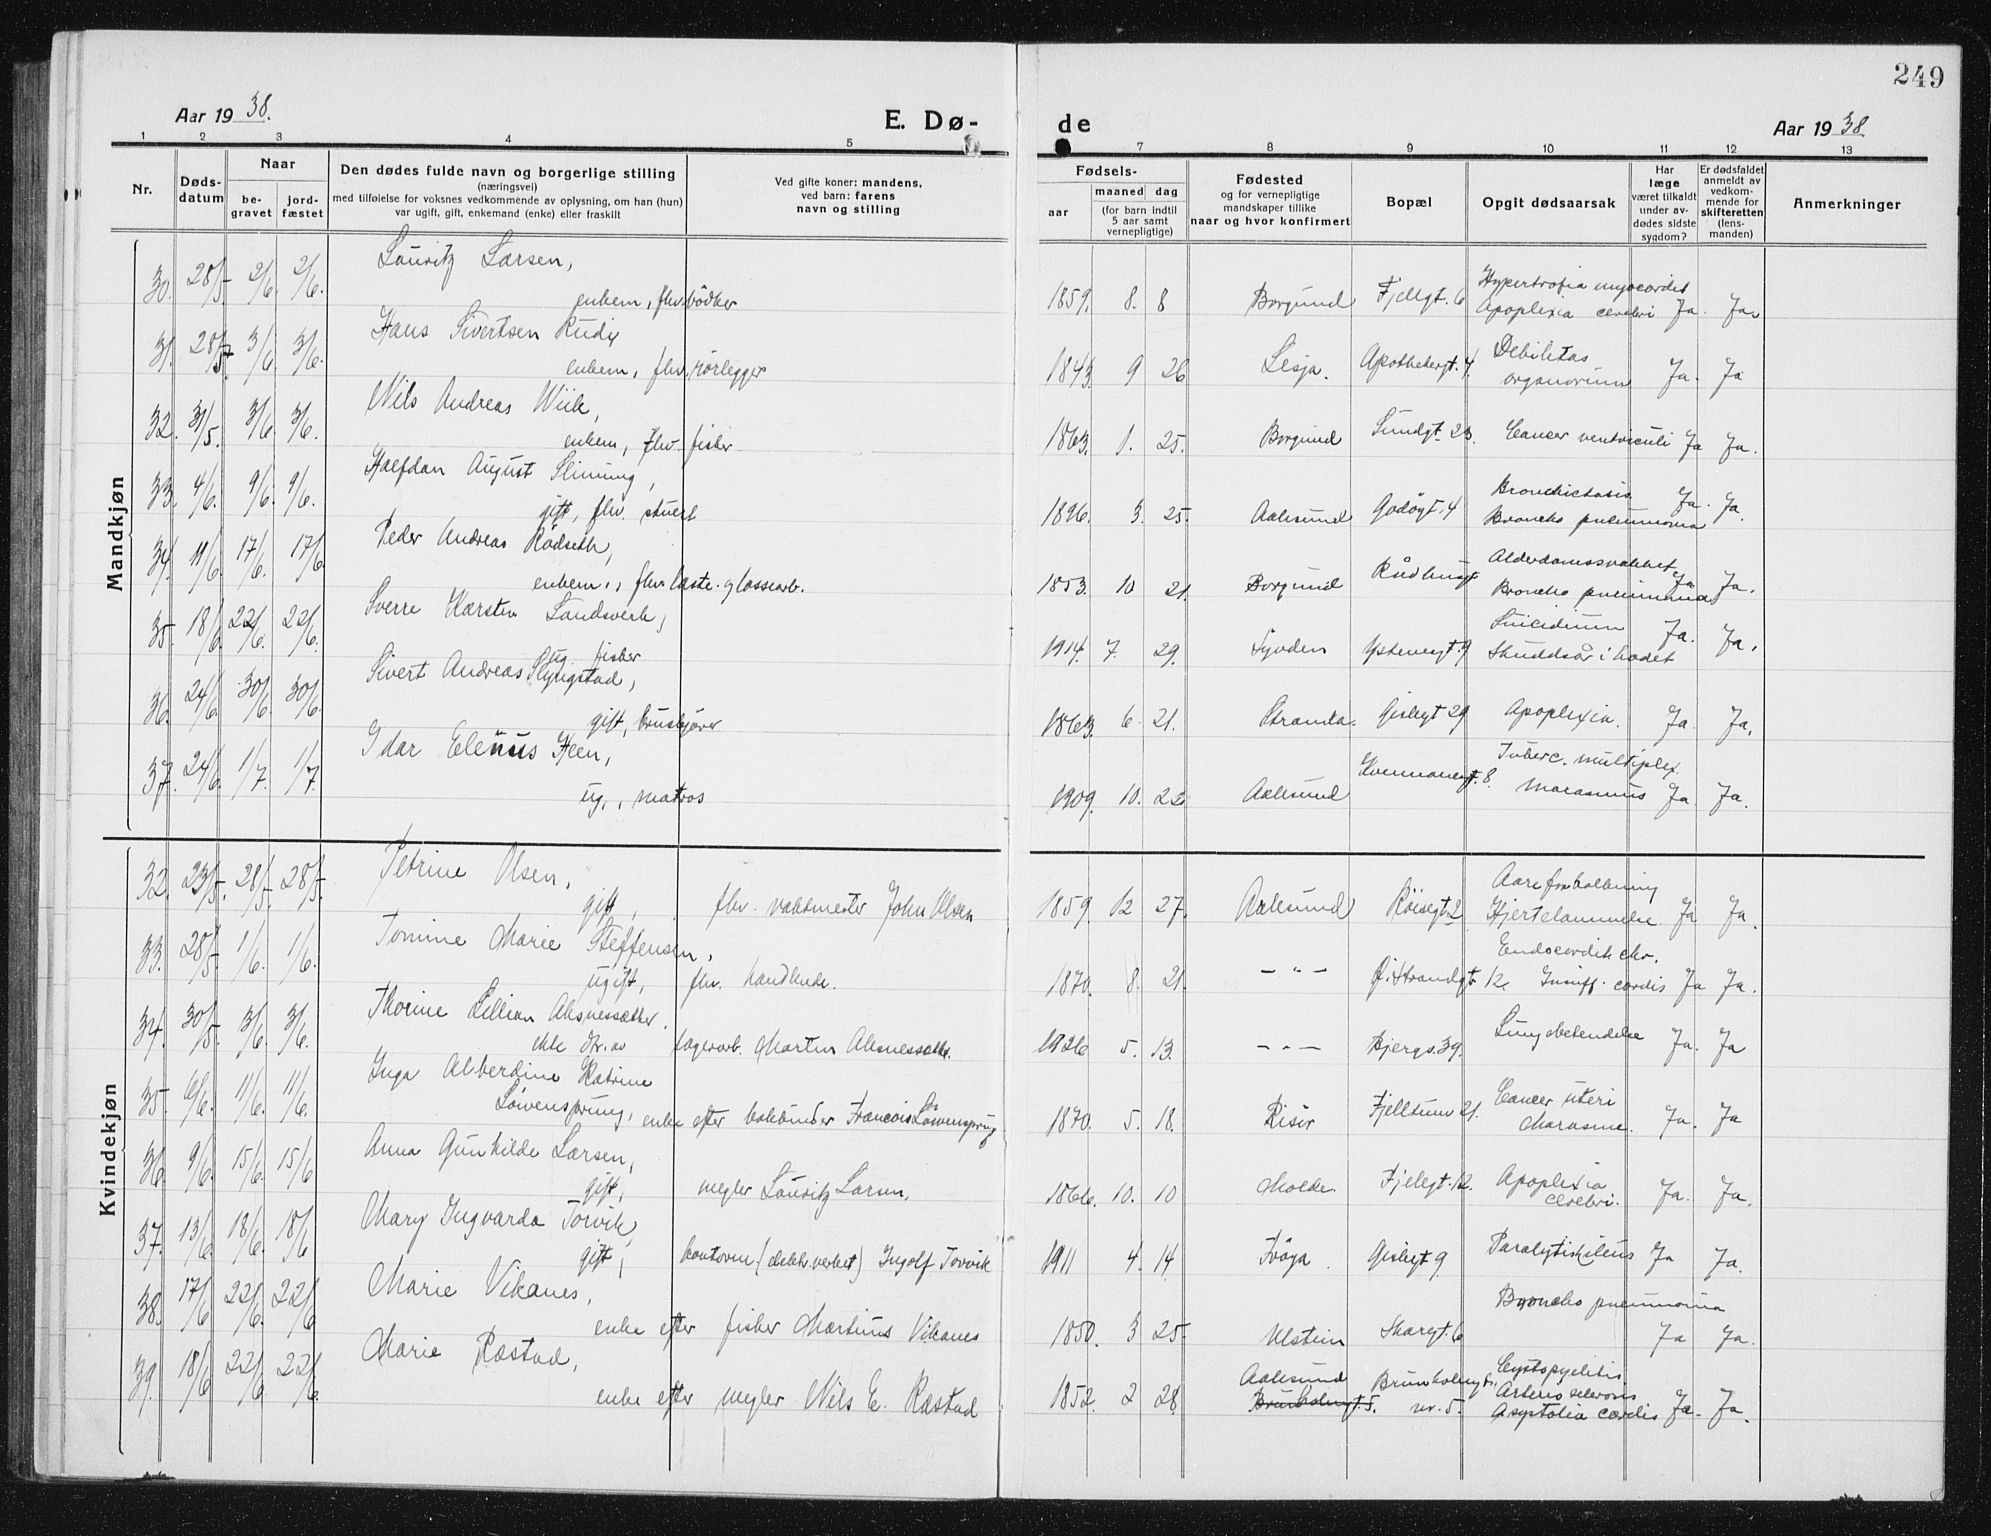 249
Aar 1938.
E. Dø-
de
Aar 1938.
1 2 3 4 5 7 8 9 10 11 12 13
Nr.
Døds-
datum
Naar
be-
gravet
jord-
fæstet
Den dødes fulde navn og borgerlige stilling
(næringsvei)
med tilføielse for voksnes vedkommende av oplysning, om han (hun)
var ugift, gift, enkemand (enke) eller fraskilt
Ved gifte koner: mandens,
ved barn: farens
navn og stilling
Fødsels-
aar
maaned dag
(for barn indtil
5 aar samt
vernepligtige)
Fødested
og for vernepligtige
mandskaper tillike
naar og hvor konfirmert
Bopæl
Opgit dødsaarsak
Har
læge
været tilkaldt
under av-
dødes sidste
sygdom?
Er dødsfaldet
anmeldt av
vedkom-
mende for
skifteretten
(lens-
manden)
Anmerkninger
Mandkjøn
30. 28/5 2/6. 2/6. Lauritz Larsen,
enkem, fhv. bödker 1859. 8. 8 Borgund Fjellgt. 6 Hypertrofia myocardit
Apoplexia cerebri Ja. Ja.
31. 28/5. 3/6. 3/6. Hans Sivertsen Rudi
enkem, fhv. rörlegger 1843. 9 26 Lesja. Apothekergt. 4. Debilitas
organorium Ja. Ja
32. 31/5. 3/6. 3/6. Nils Andreas Wiik,
enkem, fhv. fisker 1863. 1. 25. Borgund Sundgt. 23. Cancer ventriculi Ja Ja.
33. 4/6. 9/6. 9/6. Halfdan August Slinning,
gift, fhv. stuert 1896. 3. 25. Aalesund Godöygt. 4 Bronchictasis
Broncho pneumonia Ja. Ja.
34. 11/6. 17/6. 17/6. Peder Andreas Rödseth,
enkem., fhv. laste- og lossearb. 1853. 10 21. Borgund Rådhusgt. Alderdomssvakhet
Broncho pneumonia Ja Ja.
35. 18/6. 22/6. 22/6. Sverre Karsten Landsverk,
ug. fisker 1914. 7. 29. Syvden Ystenesgt. 9 Suicidium
Skuddsår i hodet Ja. Ja.
36. 24/6. 30/6. 30/6. Sivert Andreas Slyngstad,
gift, bruskjörer 1863. 6. 21. Stranda. Gislegt 29 Apoplexia. Ja. Ja.
37. 24/6. 1/7. 1/7. Idar Elenus Heen,
ug., matros 1909. 10. 22 Aalesund 8. Tuberc. multiplex.
Marasmus Ja. Ja.
Kvindekjøn
32. 23/5. 28/5. 28/5. Petrine Olsen,
gift, fhv. vaktmester John Olsen 1859. 12 27. Aalesund Röisegt. 2 Aareforkalkning
Hjertelammelse. Ja Ja.
33. 28/5. 1/6. 1/6. Tomine Marie Steffensen,
ugift, fhv. handlende. 1870. 8. 21. — " — Ö. Strandgt. 12. Endocardit chr.
Insuff. cordis Ja Ja.
34. 30/5. 3/6. 3/6. Thorine Lillian Alsnessæther.
ekte dtr. av lagerarb. Martin Alsnessæth. 1926 5. 13. — " — Bjergs. 39. Lungebetendelse Ja. Ja
35. 6/6. 11/6. 11/6. Inga Alberdine Katrine
Löwensprung, enke efter bokbinder Francois Löwensprung 1870. 5. 18. Risör Fjelltunv 21. Cancer uteri
Marasme. Ja. Ja
36. 9/6. 15/6. 15/6 Anna Gunhilde Larsen,
gift, megler Lauritz Larsen. 1866. 10. 10 Molde. Fjellgt. 12. Apoplexia
cerebri. Ja. Ja.
37. 13/6. 18/6. 18/6 Mary Ingvarda Torvik,
gift, kontorm. (elektr. verket) Ingolf Torvik 1911 4. 14. Fröya Gislegt 9. Paralytisk ileus Ja Ja.
38. 17/6 22/6. 22/6 Marie Vikanes,
enke efter fisker Martinus Vikanes 1850. 3 25. Ulstein Skaregt. 6 Broncho pneumonia
Ja Ja.
39. 18/6 22/6. 22/6. Marie Rastad,
enke efter megler Nils E. Rastad 1852. 2 28. Aalesund
Brunholmgt. 5. Brunholmgt.
nr. 5. Cystopyelitis
Arterio sclerosis
Asystolia cordis Ja. Ja.